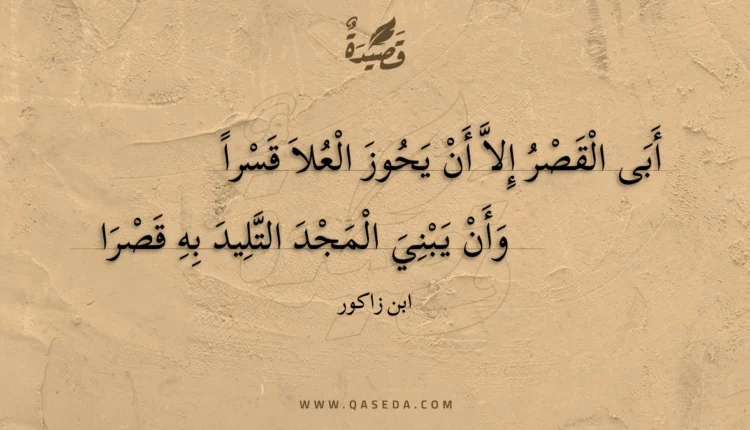 قَصِيْدَةٌ
أَبَى الْقَصْرُ إِلاَّ أَنْ يَحُوزَ الْعُلاَ قَسْراً
وَأَنْ يَبْنِيَ الْمَجْدَ التَّلِيدَ بِهِ قَصْرَا
ابن زاكور
WWW.QASEDA.COM